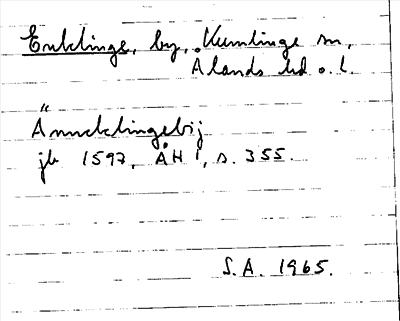 Enklinge, by, Kumlinge sn,
Ålands hd o. l.
Ännecklingebij
jb 1597, ÅH I, s. 355.
S.A. 1965.